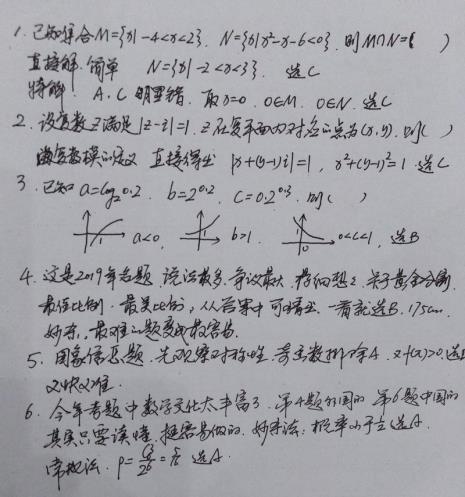 1. 已知集合M={x|-4<x<2}. N={x|x²-x-6<0}. 则M∩N=( )
直接解. 简单 N={x|-2<x<3}. 选C
特解 A、C 明显错. 取x=0. 0∈M. 0∈N. 选C
2. 设复数Z满足|z-i|=1, Z在复平面内对应的点为(x,y). 则( )
由复数模的定义 直接得出 |x+(y-1)i|=1, x²+(y-1)²=1 选C
3. 已知 a=log₂0.2. b=2^0.2. c=0.2^0.3. 则( )
a<0. b>1. 0<c<1. 选B
4. 这是2019年考题 说法最多. 争议最大. 关于黄金分割.
最佳比例. 最美比例, 从答案中可猜出. 一看就选B. 175cm.
妙杀, 最难的题变成最容易.
5. 图象信息题. 先观察对称性. 奇函数排除A. 又f(x)>0. 选
又快又准.
6. 今年考题中数学文化太丰富了. 第4题外国的 第6题中国的
其实只要读懂. 挺容易做的. 妙杀法: 概率小于 选A.
常规法. P= 选A.